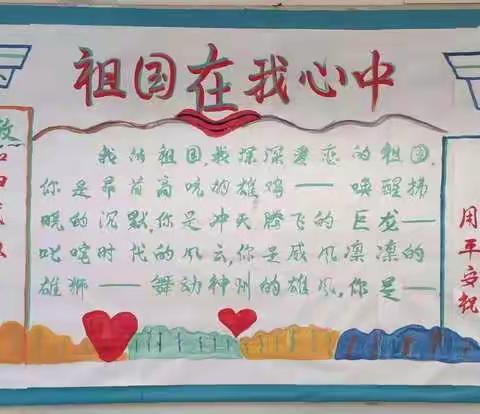 祖国在我心中
我的祖国,我深深爱恋的祖国,
你是昂首高吭的雄鸡——唤醒拂
晓的沉默,你是冲天腾飞的巨龙——
叱咤时代的风云,你是威风凛凛的
雄狮——舞动神州的雄风,你是——
用平安祝